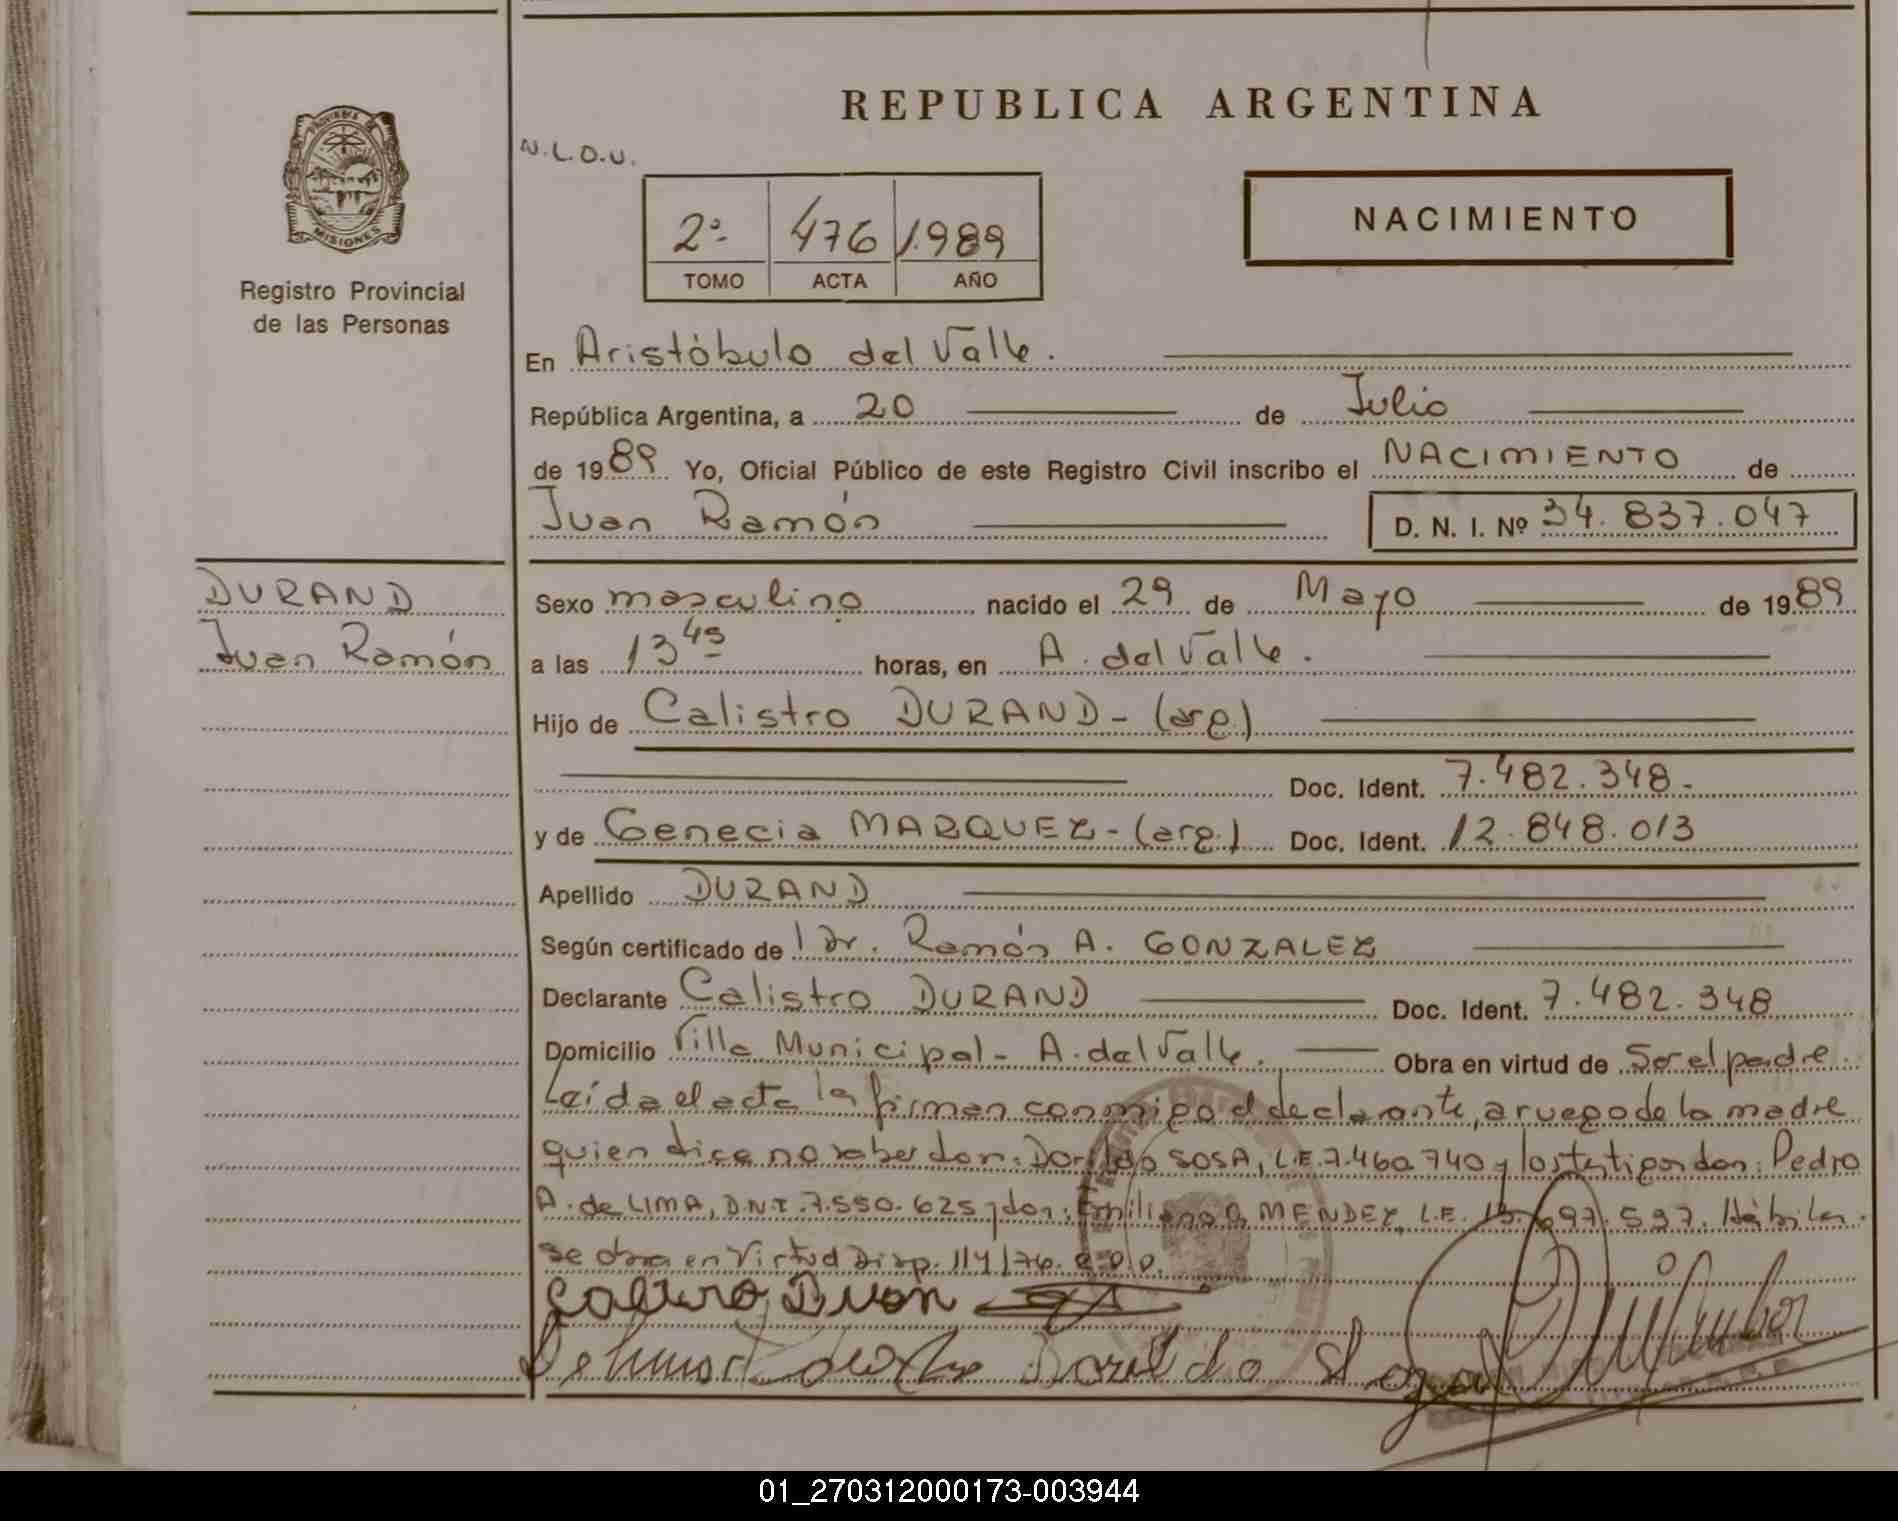 REPUBLICA ARGENTINA
PROVINCIA DE
MISIONES
Registro Provincial
de las Personas
N.L.O.U.
2º 476 1.989
TOMO ACTA AÑO
NACIMIENTO
En Aristóbulo del Valle.
República Argentina, a 20 de Julio
de 1989 Yo, Oficial Público de este Registro Civil inscribo el NACIMIENTO de
Juan Ramón D. N. I. Nº 34.837.047
DURAND
Juan Ramón
Sexo masculino nacido el 29 de Mayo de 1989
a las 13 45 horas, en A. del Valle.
Hijo de Calistro DURAND - (arg.)
Doc. Ident. 7.482.348.-
y de Genecia MARQUEZ - (arg.) Doc. Ident. 12.848.013
Apellido DURAND
Según certificado de l Dr. Ramón A. GONZALEZ
Declarante Calistro DURAND Doc. Ident. 7.482.348
Domicilio Villa Municipal - A. del Valle. Obra en virtud de Ser el padre.
Leída el acta la firman conmigo el declarante, a ruego de la madre
quien dice no saber don: Dorildo SOSA, L.E. 7.460.740 y los testigos don: Pedro
A. de LIMA, D.N.I. 7.550.625 y don: Emiliano R. MENDEZ, L.E. 697.597. Hábiles.
se obra en Virtud Disp. 114/76.
Dorildo
01_270312000173-003944